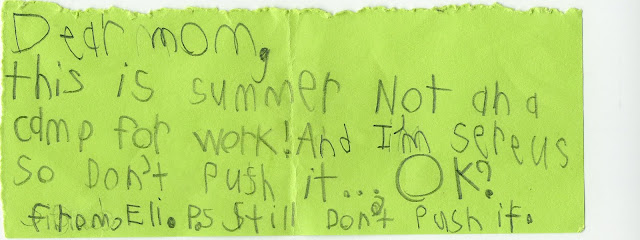 Dear mom,
this is summer Not an a
camp for work! And I'm sereus
so Don't push it... OK?
from Eli. P.s Still Don't Push it.